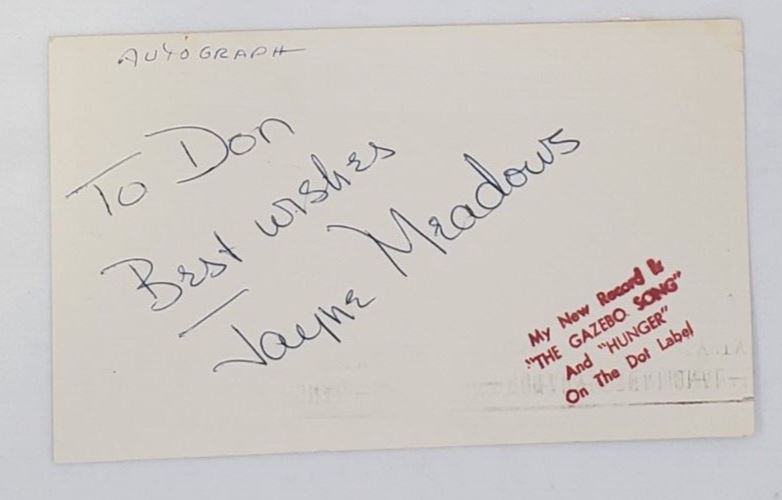 AUTOGRAPH
To Don
Best wishes
Jayne Meadows
My New Record Is
"THE GAZEBO SONG"
And "HUNGER"
On The Dot Label